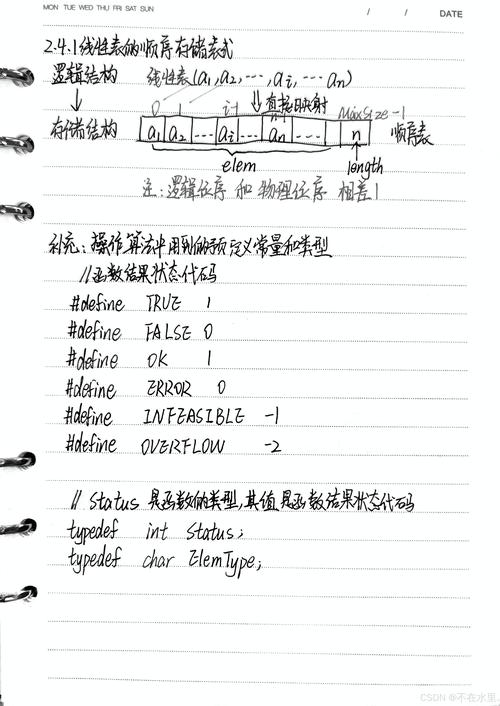 MON TUE WED THU FRI SAT SUN / / DATE
2.4.1线性表的顺序存储表式
逻辑结构 线性表(a1,a2,…,ai,…an)
↓ ↓直接映射
0 1 i-1 n-1 MaxSize-1
存储结构 a1 a2 … ai … an … n 顺序表
elem length
注:逻辑位序 和 物理位序 相差1
补充:操作算法中用到的预定义常量和类型
//函数结果状态代码
#define TRUE 1
#define FALSE 0
#define OK 1
#define ERROR 0
#define INFEASIBLE -1
#define OVERFLOW -2
// Status 是函数的类型,其值是函数结果状态代码
typedef int Status;
typedef char ElemType;
CSDN @不在水里。